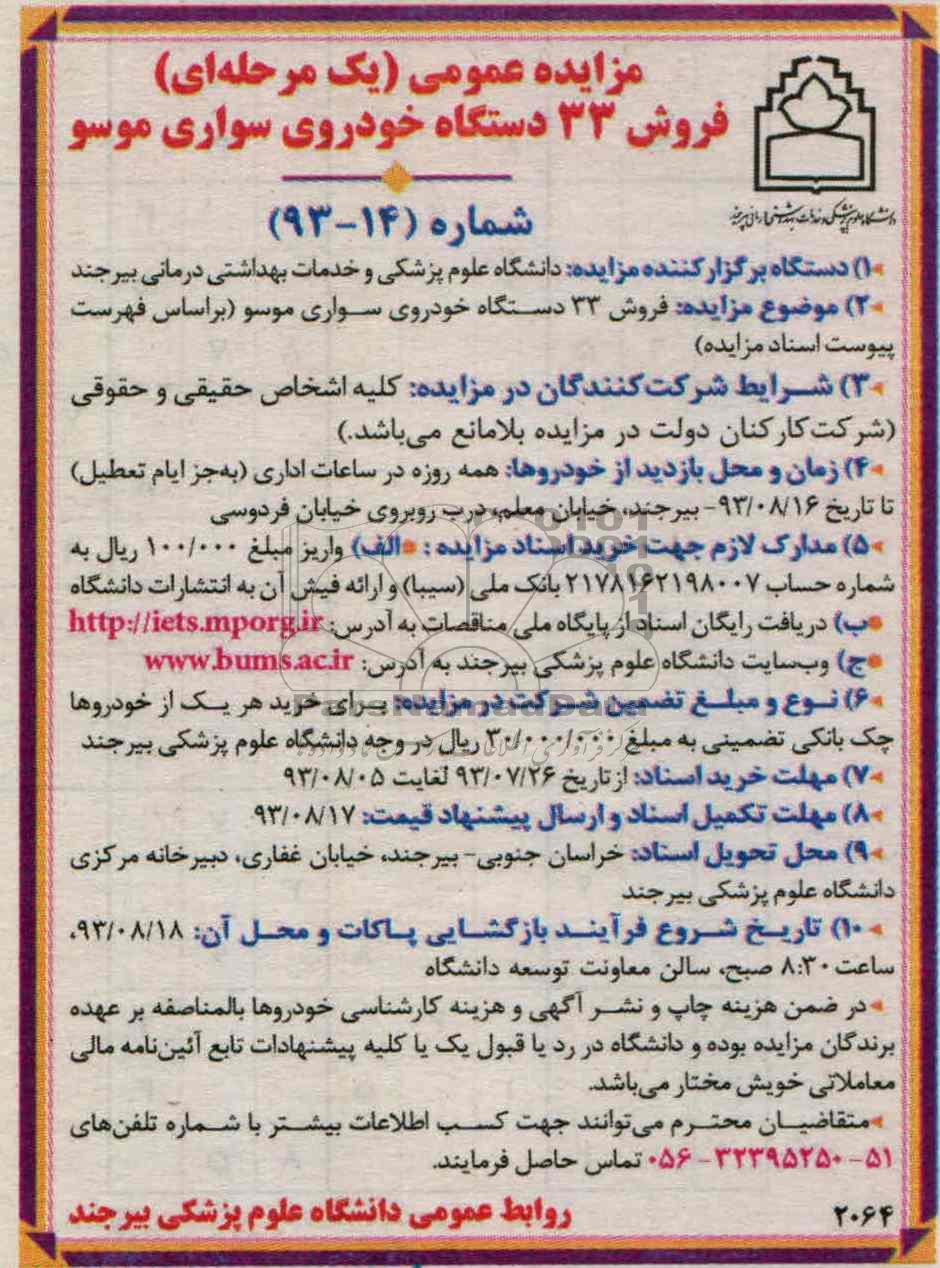 مزایده عمومی (یک مرحله‌ای)
فروش ۳۳ دستگاه خودروی سواری موسو
دانشگاه علوم پزشکی و خدمات بهداشتی درمانی بیرجند
شماره (۱۴-۹۳)
۱) دستگاه برگزارکننده مزایده: دانشگاه علوم پزشکی و خدمات بهداشتی درمانی بیرجند
۲) موضوع مزایده: فروش ۳۳ دستگاه خودروی سواری موسو (براساس فهرست
پیوست اسناد مزایده)
۳) شرایط شرکت‌کنندگان در مزایده: کلیه اشخاص حقیقی و حقوقی
(شرکت کارکنان دولت در مزایده بلامانع می‌باشد.)
۴) زمان و محل بازدید از خودروها: همه روزه در ساعات اداری (به‌جز ایام تعطیل)
تا تاریخ ۹۳/۰۸/۱۶- بیرجند، خیابان معلم، درب روبروی خیابان فردوسی
۵) مدارک لازم جهت خرید اسناد مزایده: الف) واریز مبلغ ۱۰۰/۰۰۰ ریال به
شماره حساب ۲۱۷۸۱۶۲۱۹۸۰۰۷ بانک ملی (سیبا) و ارائه فیش آن به انتشارات دانشگاه
ب) دریافت رایگان اسناد از پایگاه ملی مناقصات به آدرس: http://iets.mporg.ir
ج) وب‌سایت دانشگاه علوم پزشکی بیرجند به آدرس: www.bums.ac.ir
۶) نوع و مبلغ تضمین شرکت در مزایده: برای خرید هر یک از خودروها
ParsNamadData
چک بانکی تضمینی به مبلغ ۳۰/۰۰۰/۰۰۰ ریال در وجه دانشگاه علوم پزشکی بیرجند
۷) مهلت خرید اسناد: از تاریخ ۹۳/۰۷/۲۶ لغایت ۹۳/۰۸/۰۵
۸) مهلت تکمیل اسناد و ارسال پیشنهاد قیمت: ۹۳/۰۸/۱۷
۹) محل تحویل اسناد: خراسان جنوبی- بیرجند، خیابان غفاری، دبیرخانه مرکزی
دانشگاه علوم پزشکی بیرجند
۱۰) تاریخ شروع فرآیند بازگشایی پاکات و محل آن: ۹۳/۰۸/۱۸،
ساعت ۸:۳۰ صبح، سالن معاونت توسعه دانشگاه
در ضمن هزینه چاپ و نشر آگهی و هزینه کارشناسی خودروها بالمناصفه بر عهده
برندگان مزایده بوده و دانشگاه در رد یا قبول یک یا کلیه پیشنهادات تابع آئین‌نامه مالی
معاملاتی خویش مختار می‌باشد.
متقاضیان محترم می‌توانند جهت کسب اطلاعات بیشتر با شماره تلفن‌های
۵۱-۳۲۳۹۵۲۵۰-۰۵۶ تماس حاصل فرمایند.
۲۰۶۴ روابط عمومی دانشگاه علوم پزشکی بیرجند